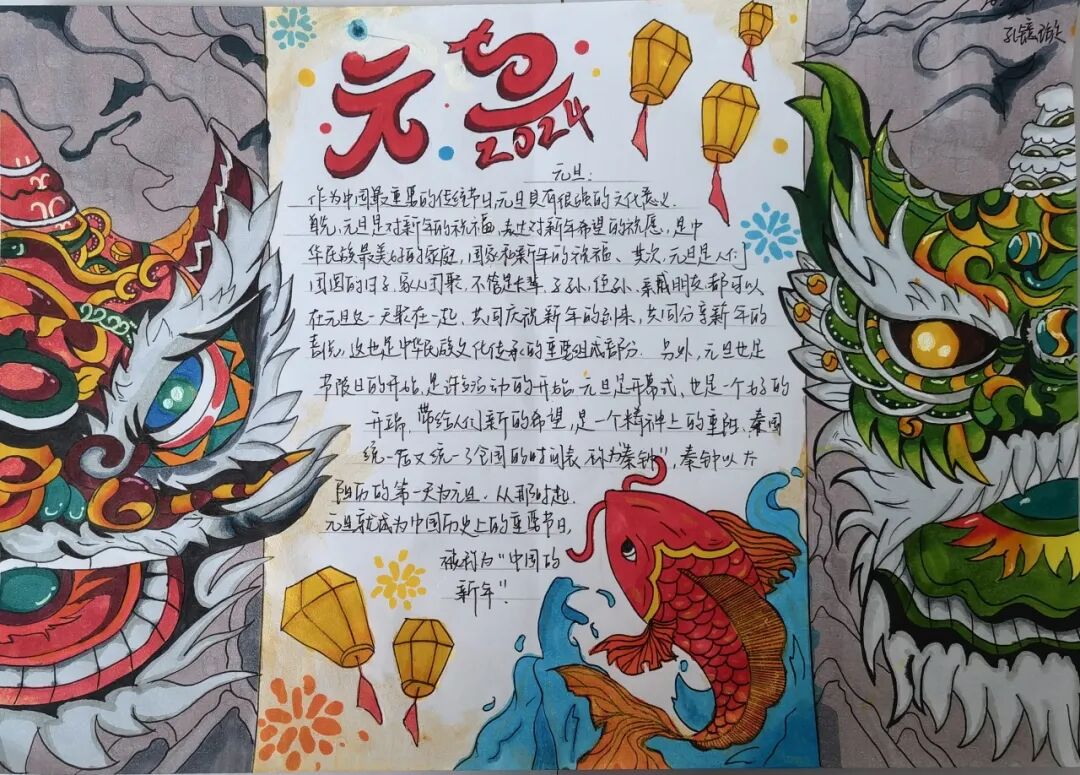 元旦
2024
元旦:
作为中国最重要的传统节日,元旦具有很强的文化意义.
首先,元旦是对新年的祝福,表达对新年希望的祝愿,是中
华民族最美好的家庭,国家和新年的祝福、其次,元旦是人们
团圆的日子.家人团聚,不管是长辈、子孙、侄孙、亲戚朋友都可以
在元旦这一天聚在一起、共同庆祝新年的到来,共同分享新年的
喜悦,这也是中华民族文化传承的重要组成部分.另外,元旦也是
节假日的开始,是许多活动的开始.元旦是开幕式,也是一个好的
开端,带给人们新的希望,是一个精神上的重阳、秦国
统一后又统一了全国的时间表称为"秦钟",秦钟以太
阳历的第一天为元旦.从那时起.
元旦就成为中国历史上的重要节日,
被称为"中国的
新年".